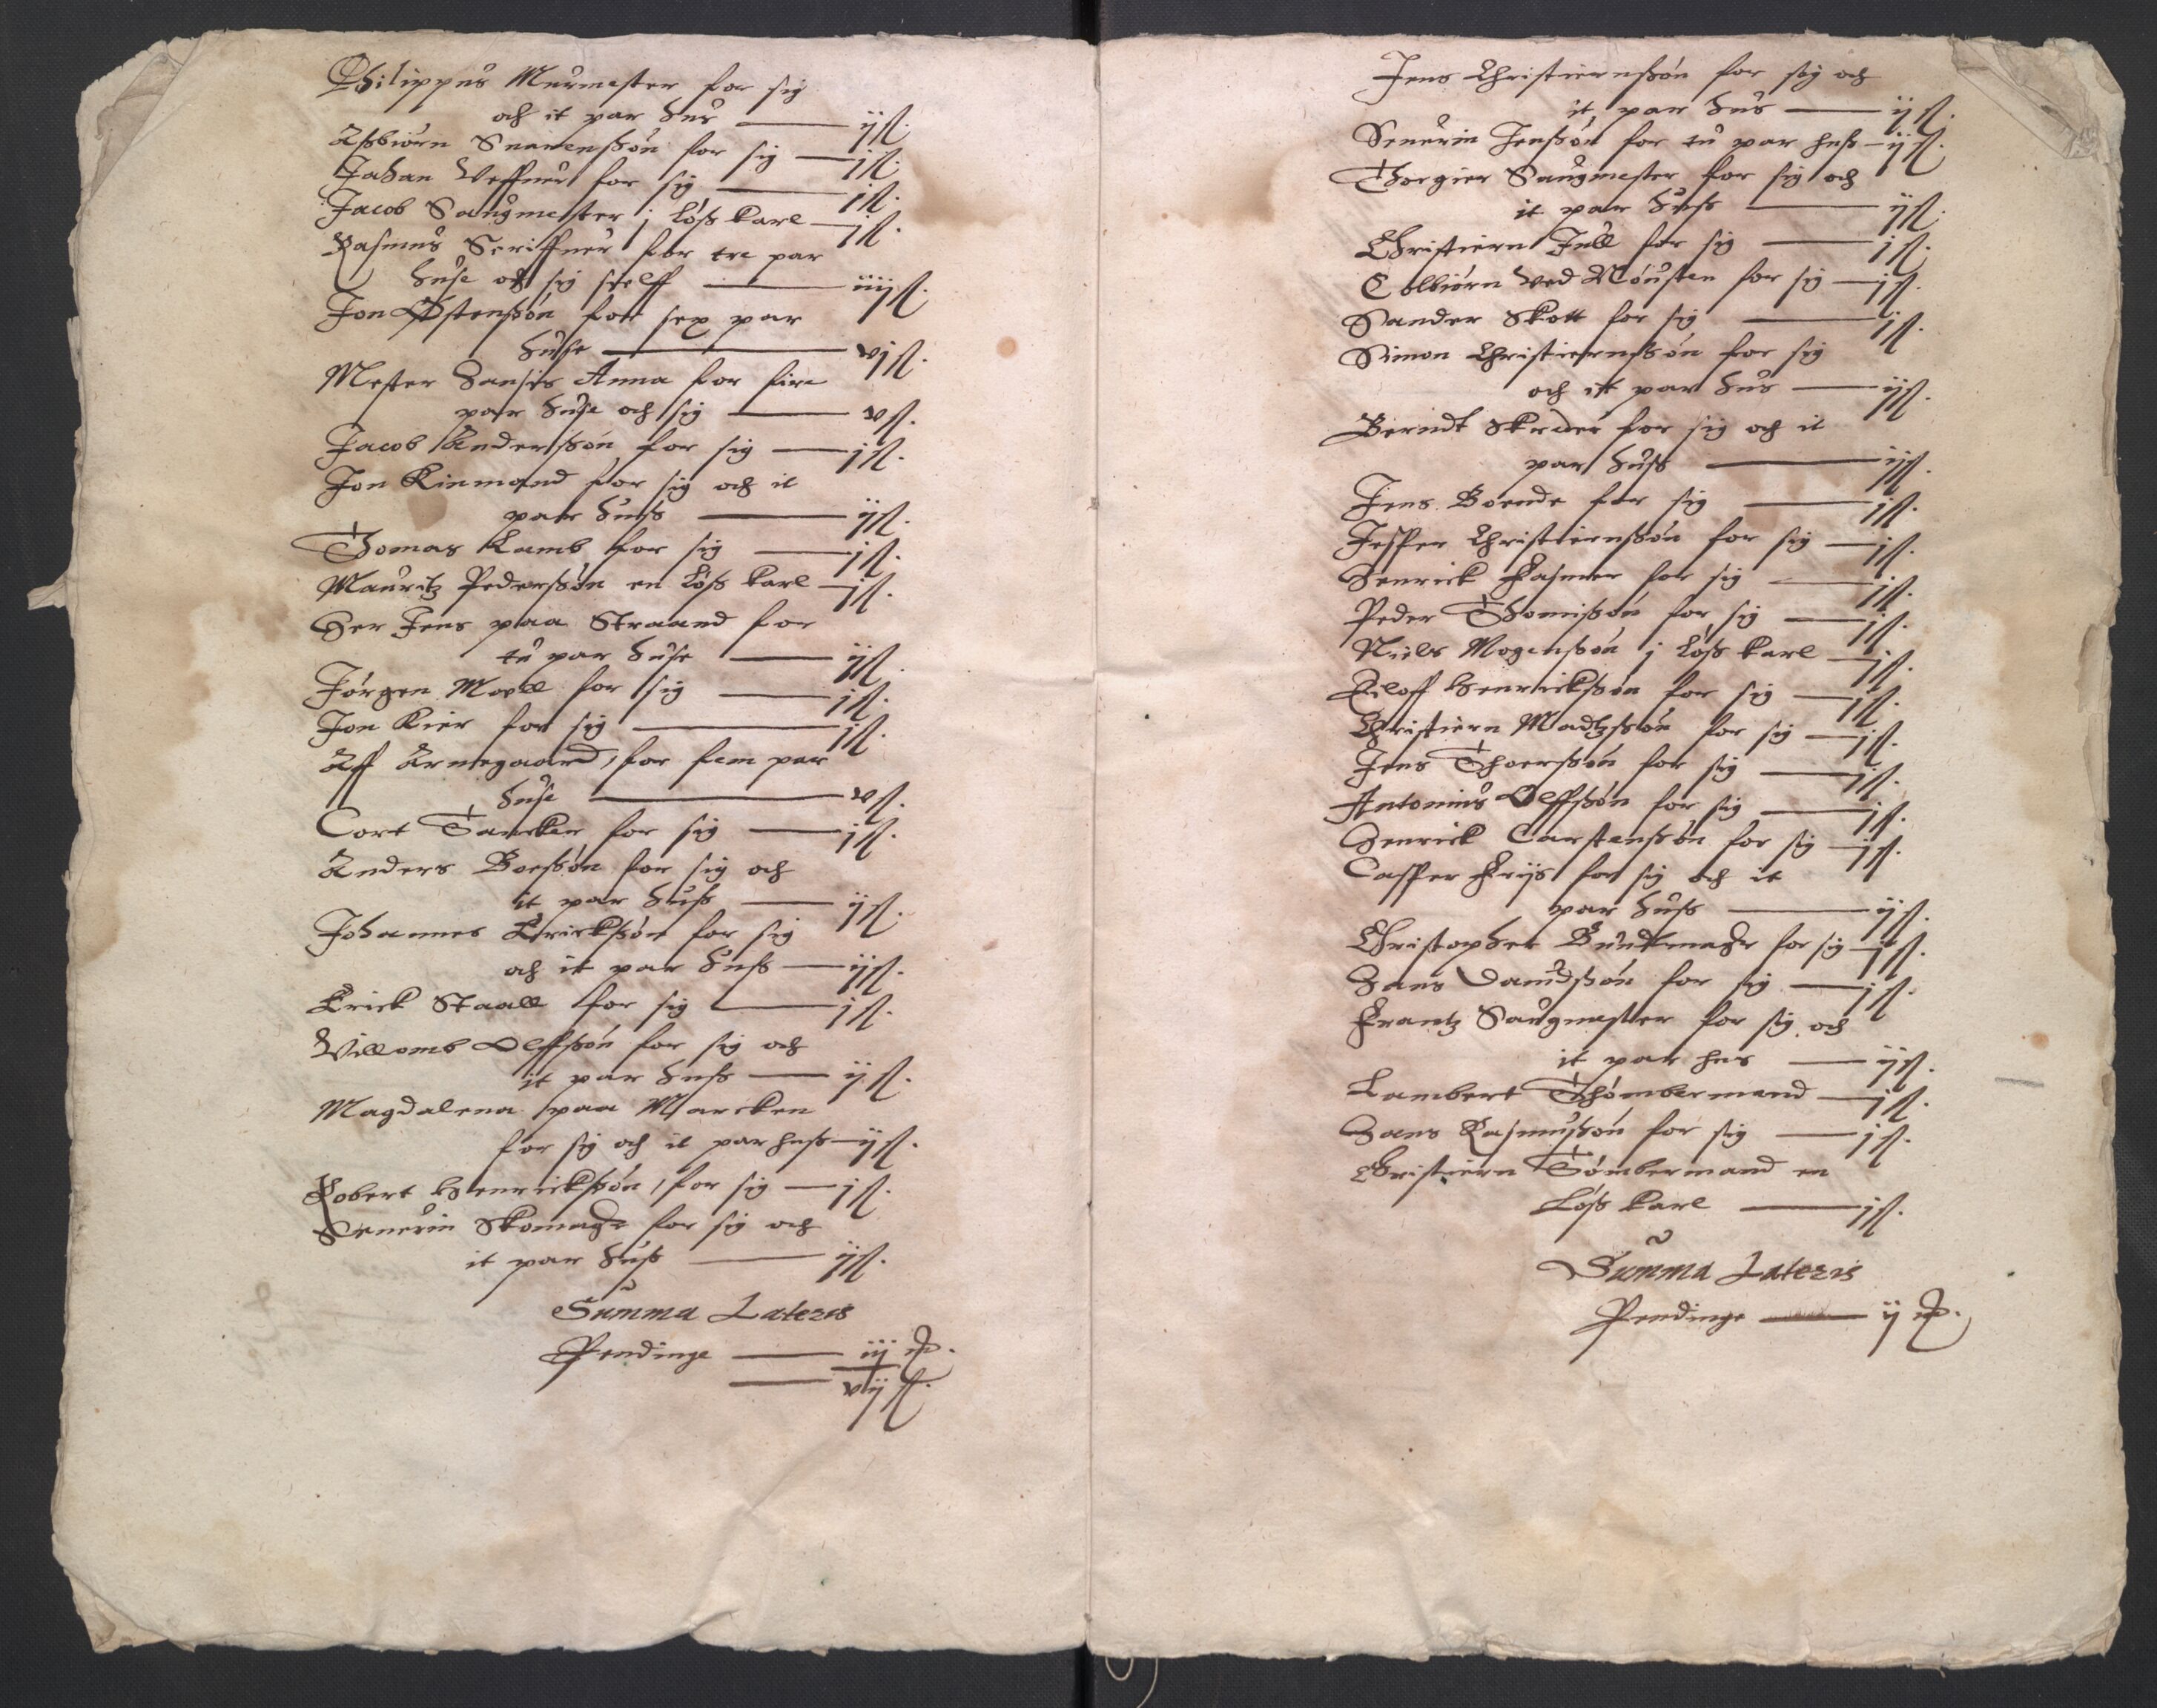 Philippus Murmester for sig
och it par hus — ij ß.
Asbiörn Snarensßön for sig — j ß.
Johan Veffuer for sig — j ß.
Jacob Saugmester j löß karl — j ß.
Rasmus Scriffuer for tre par
huse och sig sielff — iiij ß.
Jon Østensßön for sex par
huse — vj ß.
Mester Hansis Anna for fire
par huse och sig — v ß.
Jacob Andersßön for sig — j ß.
Jon Kinmand for sig och it
par huß — ij ß.
Thomas Lamb for sig — j ß.
Mauritz Pedersßön en löß karl — j ß.
Her Jens paa Straand for
tu par huse — ij ß.
Jörgen Moell for sig — j ß.
Jon Kier for sig — j ß.
Aff Arnegaard, for fem par
huse — v ß.
Cort Tancker for sig — j ß.
Anders Boesßön for sig och
it par huß — ij ß.
Johannes Ericksßön for sig
och it par huß — ij ß.
Erick Staall for sig — j ß.
Villomb Olffsßön for sig och
it par huß — ij ß.
Magdalena paa Marcken
for sig och it par huß — ij ß.
Robert Henricksßön, for sig — j ß.
Seuerin Skomager for sig och
it par huß — ij ß.
Summa Lateris
Pendinge — iij mk.
— vij ß.
Jens Christiernsßön for sig och
it par hus — ij ß.
Seuerin Jensßön for tu par huß — ij ß.
Thorgier Saugmester for sig och
it par huß — ij ß.
Christiern Jull for sig — j ß.
Colbiörn ved Nöusten for sig — j ß.
Sander Skott for sig — j ß.
Simon Christiernsßön for sig
och it par hus — ij ß.
Berindt Skreder for sig och it
par huß — ij ß.
Jens Boende for sig — j ß.
Jesper Christiernsßön for sig — j ß.
Henrick Fasmer for sig — j ß.
Peder Thomisßön for sig — j ß.
Niels Mogensßön j löß karl — j ß.
Eiloff Henricksßön for sig — j ß.
Christiern Madtzsßön for sig — j ß.
Jens Thoersßön for sig — j ß.
Antonius Olffsßön for sig — j ß.
Henrick Carstensßön for sig — j ß.
Casper Friis for sig och it
par huß — ij ß.
Christopher Buntmager for sig — j ß.
Hans Dauidsßön for sig — j ß.
Frantz Saugmester for sig och
it par hus — ij ß.
Lambert Thömbermand — j ß.
Hans Rasmusßön for sig — j ß.
Christiern Tömbermand en
Löß karl — j ß.
Summa Lateris
Pendinge — ij mk.